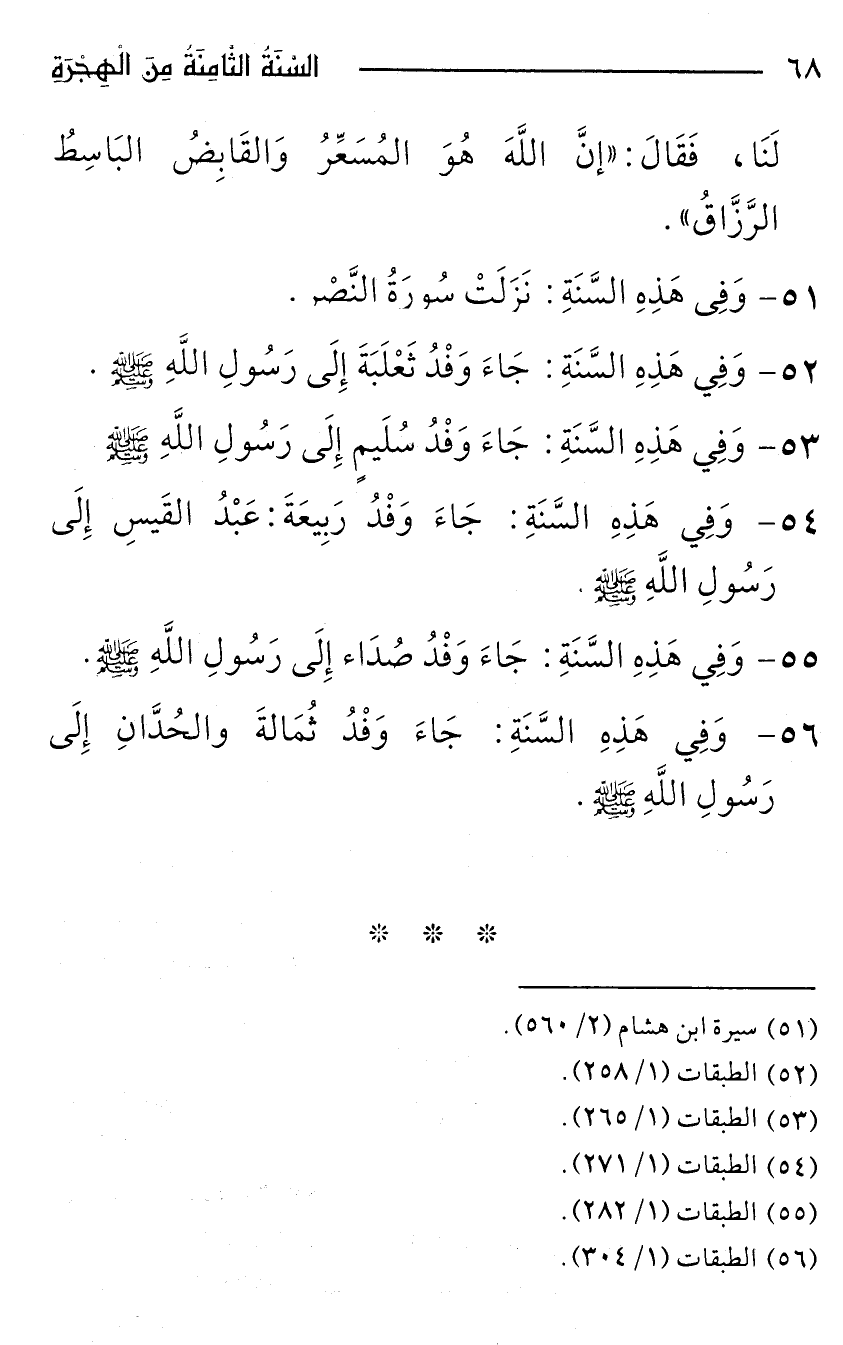 ٦٨ السَّنَةُ الثَّامِنَةُ مِنَ الْهِجْرَةِ
لَنَا، فَقَالَ: «إِنَّ اللَّهَ هُوَ المُسَعِّرُ وَالقَابِضُ البَاسِطُ
الرَّزَّاقُ».
٥١- وَفِي هَذِهِ السَّنَةِ: نَزَلَتْ سُورَةُ النَّصْرِ.
٥٢- وَفِي هَذِهِ السَّنَةِ: جَاءَ وَفْدُ ثَعْلَبَةَ إِلَى رَسُولِ اللَّهِ ﷺ.
٥٣- وَفِي هَذِهِ السَّنَةِ: جَاءَ وَفْدُ سُلَيمٍ إِلَى رَسُولِ اللَّهِ ﷺ
٥٤- وَفِي هَذِهِ السَّنَةِ: جَاءَ وَفْدُ رَبِيعَةَ: عَبْدُ القَيسِ إِلَى
رَسُولِ اللَّهِ ﷺ.
٥٥- وَفِي هَذِهِ السَّنَةِ: جَاءَ وَفْدُ صُدَاء إِلَى رَسُولِ اللَّهِ ﷺ.
٥٦- وَفِي هَذِهِ السَّنَةِ: جَاءَ وَفْدُ ثُمَالةَ والحُدَّانِ إِلَى
رَسُولِ اللَّهِ ﷺ.
* * *
(٥١) سيرة ابن هشام (٢/ ٥٦٠).
(٥٢) الطبقات (١/ ٢٥٨).
(٥٣) الطبقات (١/ ٢٦٥).
(٥٤) الطبقات (١/ ٢٧١).
(٥٥) الطبقات (١/ ٢٨٢).
(٥٦) الطبقات (١/ ٣٠٤).